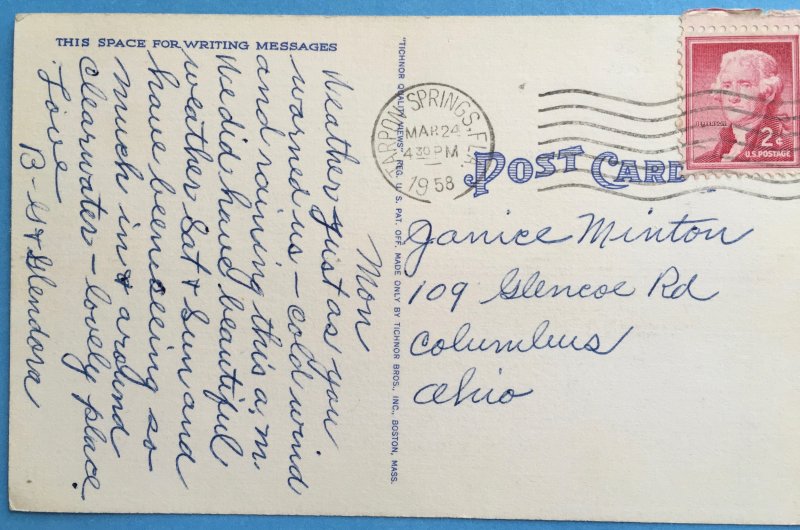 THIS SPACE FOR WRITING MESSAGES
Mon
Weather just as you
warned us, - cold wind
and raining this a.m.
We did have beautiful
weather Sat & Sun and
have been seeing so
much in & around
Clearwater - lovely place.
Love
B- G & Glendora
"TICHNOR QUALITY VIEWS," REG. U. S. PAT. OFF. MADE ONLY BY TICHNOR BROS., INC., BOSTON, MASS.
TARPON SPRINGS, FLA.
MAR 24
4 30 PM
1958
POST CARD
JEFFERSON
2¢
U.S. POSTAGE
Janice Minton
109 Glencoe Rd
Columbus
Ohio